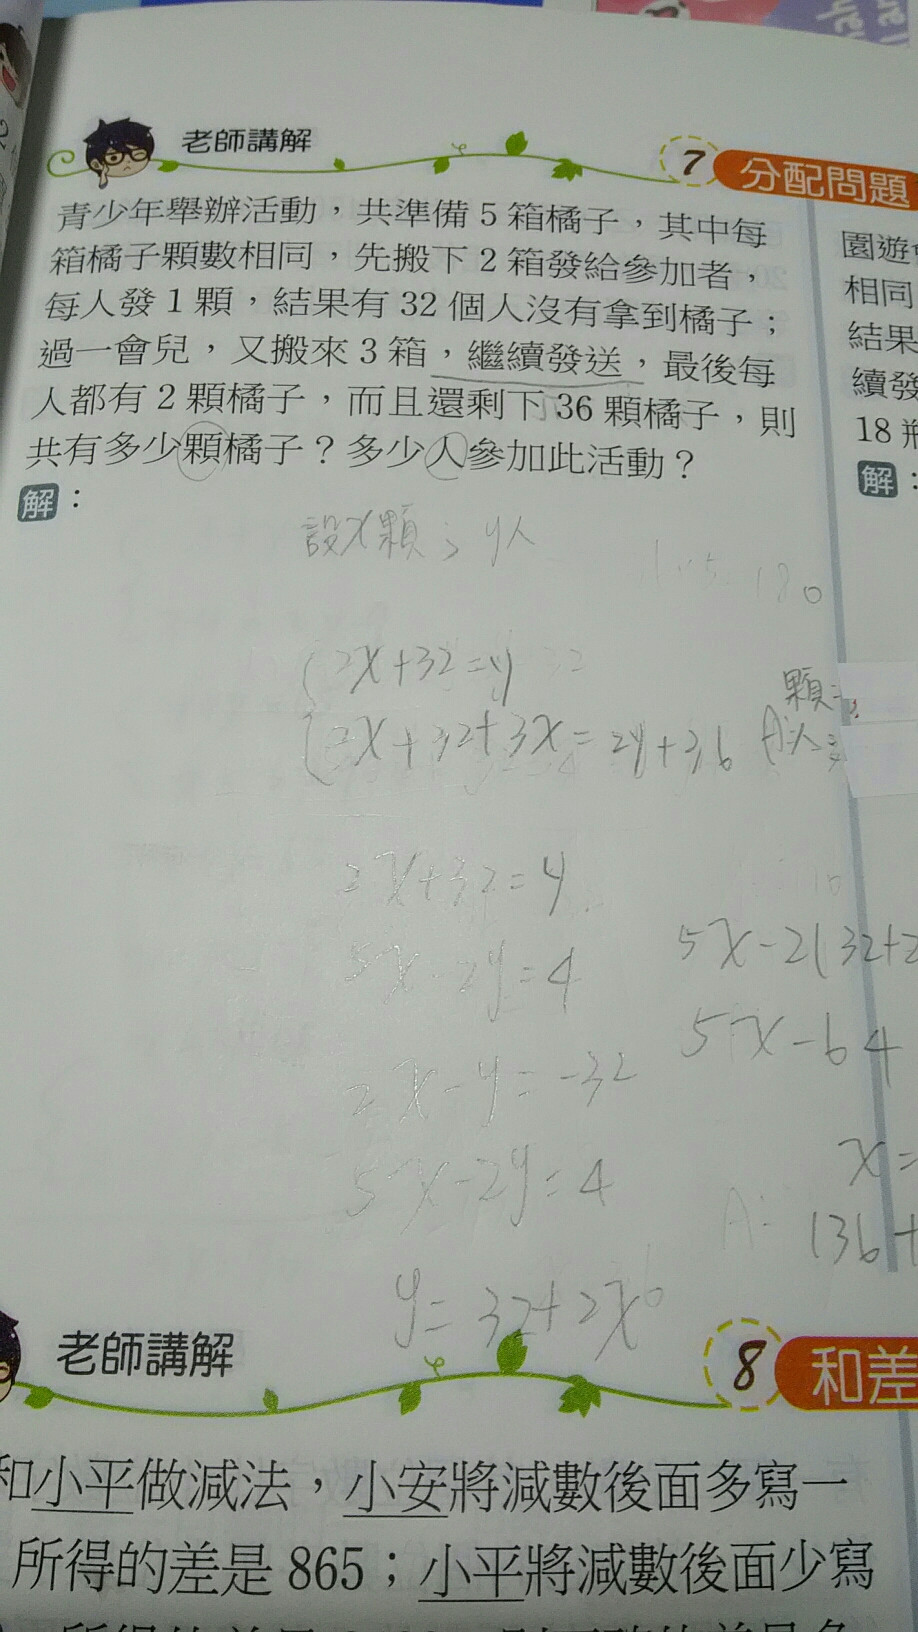 老師講解
7 分配問題
青少年舉辦活動，共準備5箱橘子，其中每
箱橘子顆數相同，先搬下2箱發給參加者，
每人發1顆，結果有32個人沒有拿到橘子；
過一會兒，又搬來3箱，繼續發送，最後每
人都有2顆橘子，而且還剩下36顆橘子，則
共有多少顆橘子？多少人參加此活動？
解：
設x顆；y人
2x+32=y
2x+32+3x=2y+36
2x+32=y
5x-2y=4
2x-y=-32
5x-2y=4
y=32+2x
顆
A:人
5x-2(32+2
5x-64
x=
A:
136+
園遊
相同
結果
續發
18
解：
老師講解
8 和差
和小平做減法，小安將減數後面多寫一
所得的差是865；小平將減數後面少寫